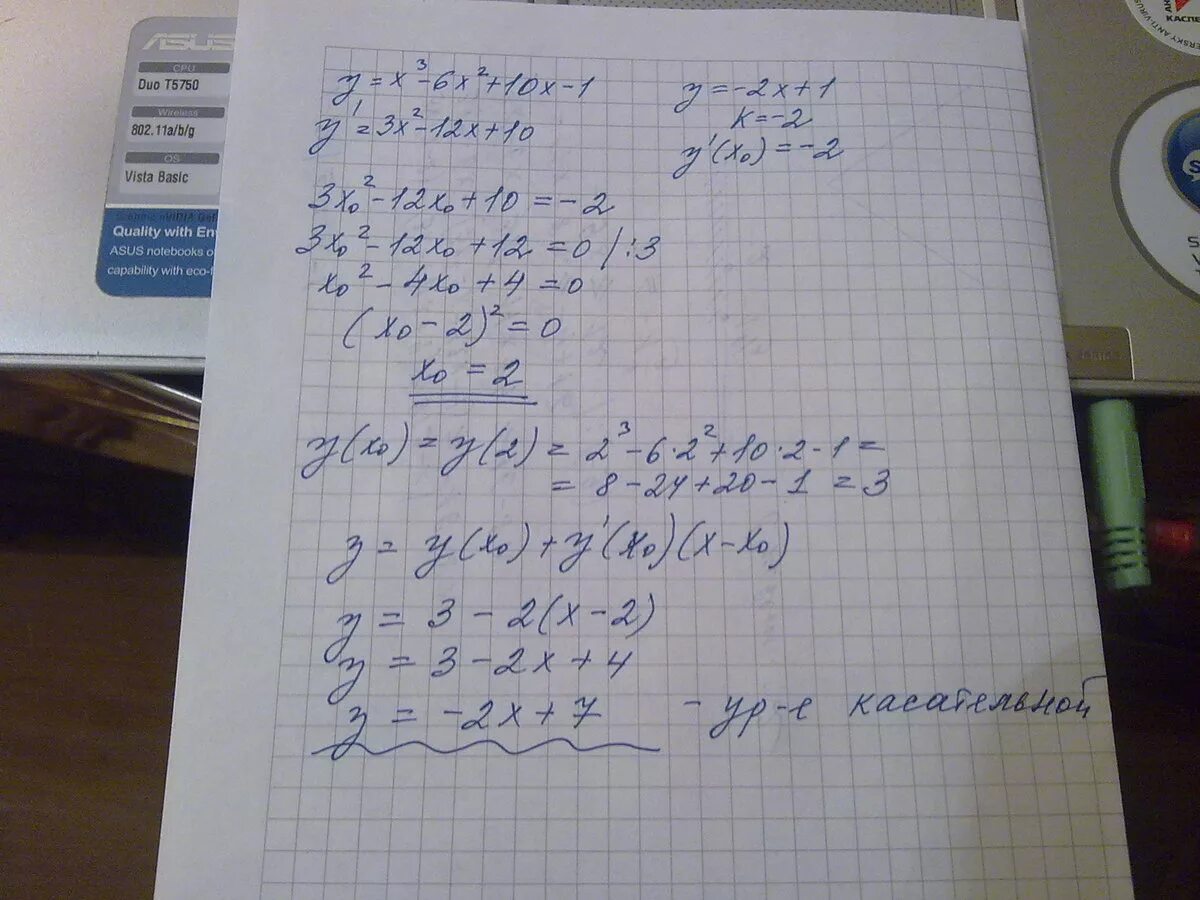 ASUS
CPU
Duo T5750
Wireless
802.11a/b/g
OS
Vista Basic
Quality with
ASUS notebooks
capability with
y = x³ - 6x² + 10x - 1
y' = 3x² - 12x + 10
y = -2x + 1
k = -2
y'(x₀) = -2
3x₀² - 12x₀ + 10 = -2
3x₀² - 12x₀ + 12 = 0 /:3
x₀² - 4x₀ + 4 = 0
(x₀ - 2)² = 0
x₀ = 2
y(x₀) = y(2) = 2³ - 6·2² + 10·2 - 1 =
= 8 - 24 + 20 - 1 = 3
y = y(x₀) + y'(x₀)(x - x₀)
y = 3 - 2(x - 2)
y = 3 - 2x + 4
y = -2x + 7 - ур-е касательной